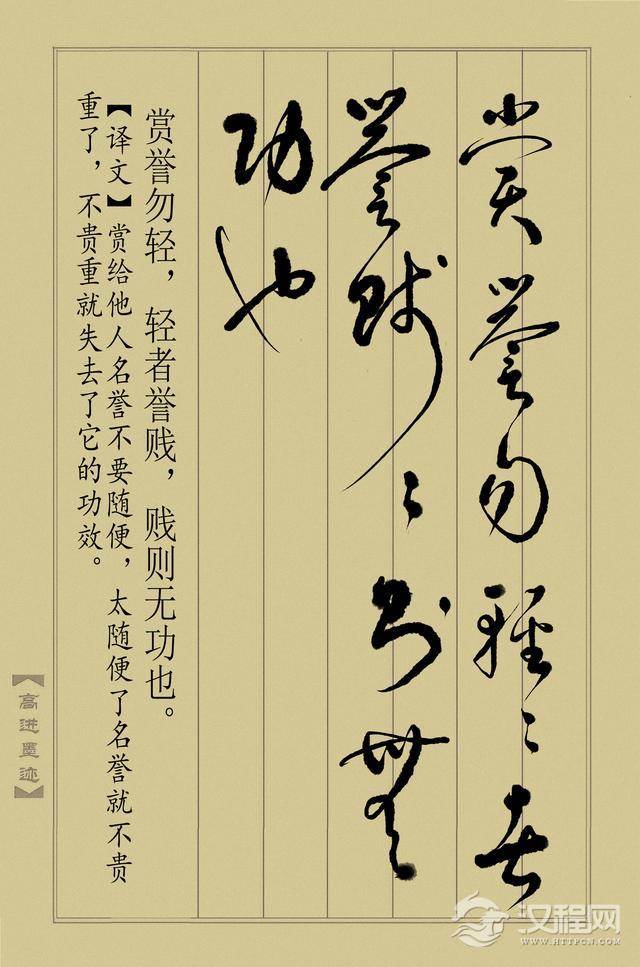 赏誉勿轻〻者
誉贱〻则无
功也
赏誉勿轻，轻者誉贱，贱则无功也。
【译文】赏给他人名誉不要随便，太随便了名誉就不贵
重了，不贵重就失去了它的功效。
【高进墨迹】
汉程网
WWW.HTTPCN.COM